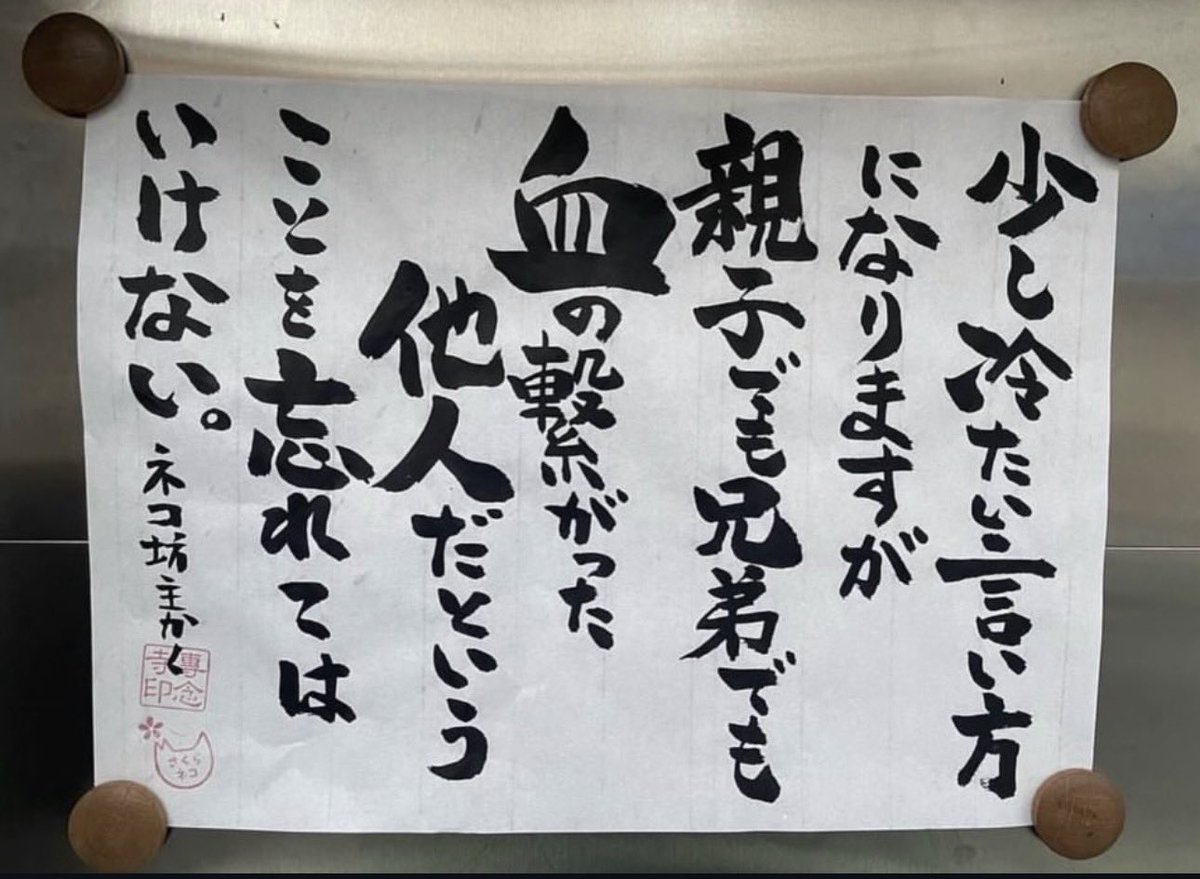 少し冷たい言い方
になりますが
親子でも兄弟でも
血の繋がった
他人だという
ことを忘れては
いけない。
ネコ坊主かく
專念
寺印
さくら
ネコ